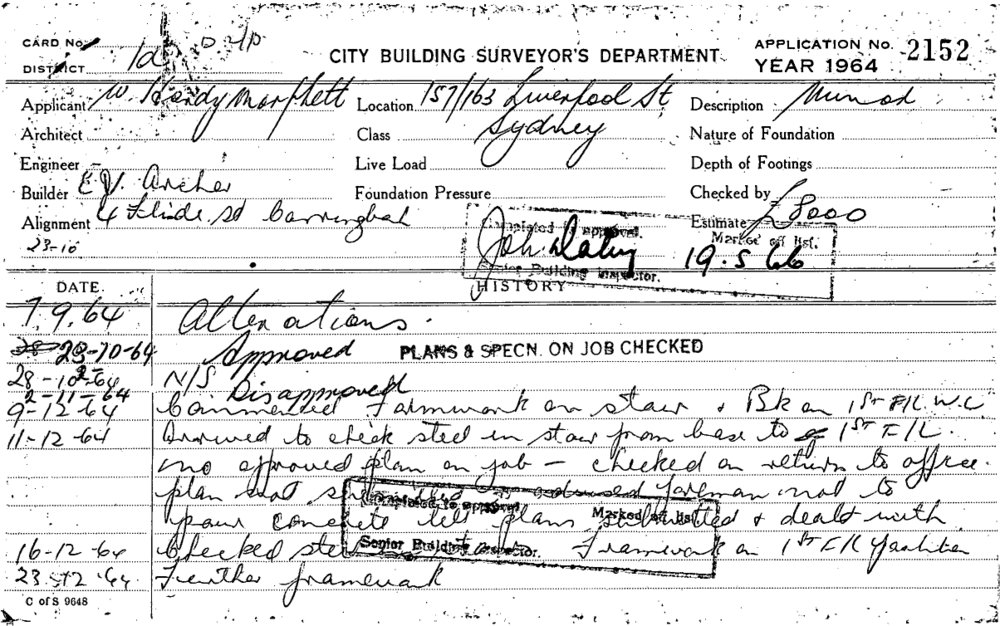 CARD No.
DISTRICT 1d
CITY BUILDING SURVEYOR'S DEPARTMENT
APPLICATION No. 2152
YEAR 1964
Applicant W. Hardy Morphett
Location 157/163 Liverpool St
Sydney
Description Minor
Architect
Class
Nature of Foundation
Engineer
Live Load
Depth of Footings
Builder E.V. Archer
Foundation Pressure
Checked by
Alignment 4 St
Estimate £8000
23-10
Completed to approval.
Marked off list.
19.5.66
Senior Building Inspector.
HISTORY
DATE
7.9.64 Alterations.
23-10-64 Approved PLANS & SPECN. ON JOB CHECKED
28-10-64 N/S
2-11-64 Disapproved
9-12-64 Commenced Formwork on stair & Bk on 1st F/L W.C
11-12-64 Arrived to check steel in stair from base to 1ST F/L.
no approved plan on job — checked on return to office.
plan not advised foreman not to
pour concrete till plans submitted & dealt with
Completed to approval.
Marked off list
Senior Building Inspector.
16-12-64 Checked Framework on 1ST F/L
23 12 64 Further framework
C of S 9648